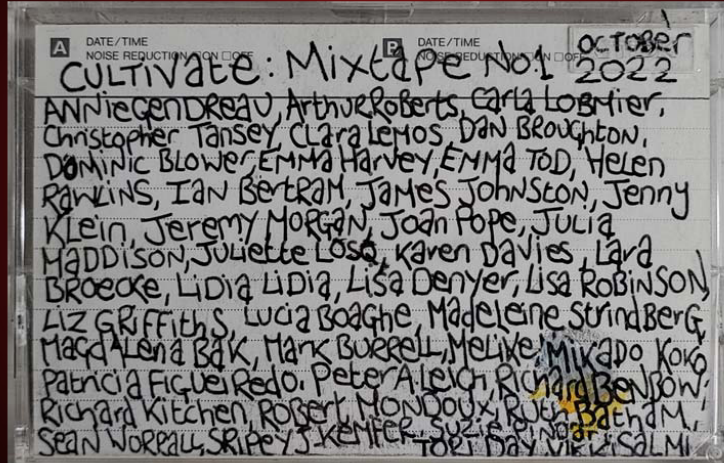 A DATE/TIME B DATE/TIME OCTOBER
NOISE REDUCTION □ON □OFF NOISE REDUCTION □ON □OFF 2022
CULTIVATE: MIXTAPE No.1
ANNIE GENDREAU, ARTHUR ROBERTS, CARLA LOBMIER,
Christopher Tansey, CLARA LEMOS, DAN BROUGHTON,
DOMINIC BLOWER, EMMA HARVEY, EMMA TOD, HELEN
RAWLINS, IAN BERTRAM, JAMES JOHNSTON, JENNY
KLEIN, JEREMY MORGAN, JOAN POPE, JULIA
MADDISON, JULIETTE LOSQ, KAREN DAVIES, LARA
BROECKE, LIDIA LIDIA, LISA DENYER, LISA ROBINSON,
LIZ GRIFFITHS, LUCIA BOAGHE, MADELEINE STRINDBERG,
MAGDALENA BAK, MARK BURRELL, MELIKE, MIKADO KOKO
PATRICIA FIGUEIREDO. PETER A. LEIGH, RICHARD BENBOW.
RICHARD KITCHEN, ROBERT MONDOUX, RUTH BATHAM.,
SEAN WORRALL, SRIPEY J. KEMFER, SUZIE
TORI DAY VIKKI SALMI